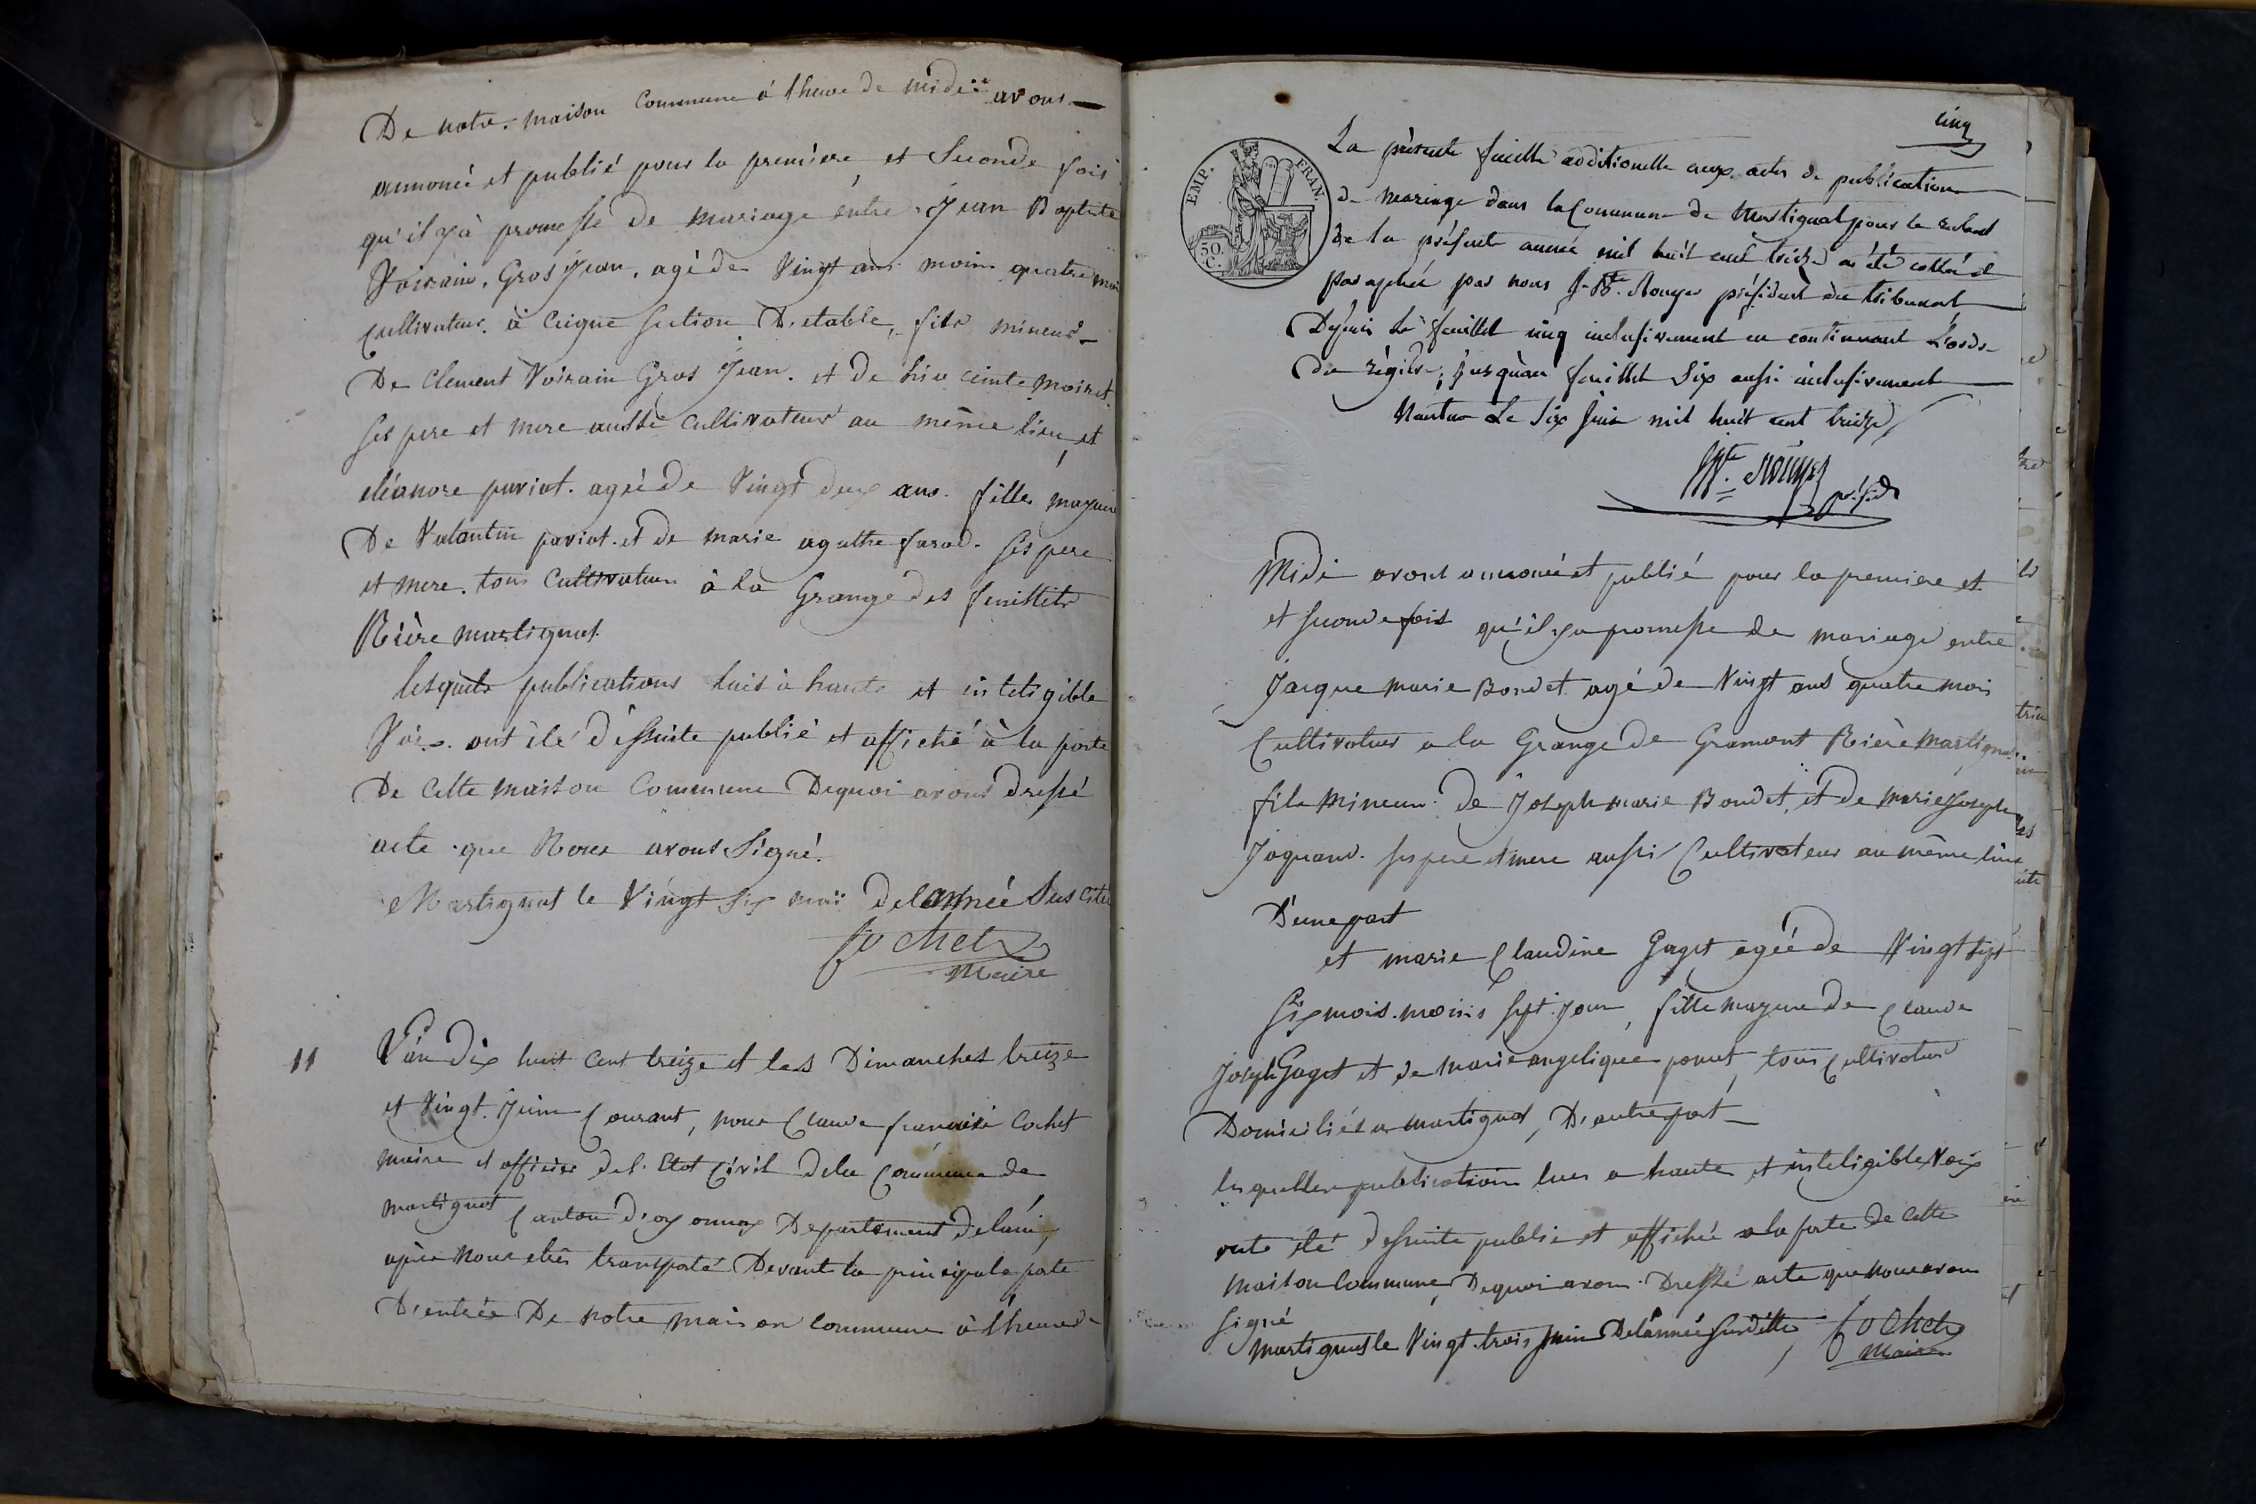 De notre maison Commune á lheure de midii avons
annoncé et publié pour la première et Seconde fois
qu'il ya promesse de mariage entre Jean Baptiste
Voisain. Gros Jean. agé de Vingt ans moins quatre moi
cultivateur à section D'etable, fils mineur
De Clement Voirain Gros Jean. et de
ses pere et mere aussi Cultivateur au même lieu, et
eléanore paviot. agéé de Vingt deux ans. fille majeure
De Valantin paviot. et de marie agathe ses pere
et mere. tous Cultivateurs à la Grange des feuillets
Rière martignat.
lesquels publications luës à haute et inteligible
Voix. ont été D'essuite publié et affiché à la porte
De Cette maison Commune Dequoi avons dressé
acte que Nous avons Signé.
Martignat le Vingt Six mai Delannée Sus citée
Cochet
Maire
11
L'an Dix huit Cent treize et les Dimanches treize
et Vingt Juin Courant, nous Claude francois Cochet
maire et officier del'Etat Civil dela Commune de
martignat Canton D'oyonnax Departement delain,
après nous etres transporté Devant la principale porte
D'entrée De notre maison commune à lheure de
cinq
EMP. FRAN.
50. C.
La présente feuille additionelle aux actes de publication
de mariage dans la Commune de Martignat pour le
de la présente année mil huit cent treize a été cotté et
paraphée par nous J. Bte. Rouyer président du tribunal
Depuis le feuillet cinq inclusivement en continuant l'ordre
du régitre, jusqu'au feuillet Six aussi inclusivement
Nantua Le Six Juin mil huit cent treize
Bte. Rouyer présidt
Midi avont annoncé et publié pour la premiere et
et seconde fois qu'il ya promesse de mariage entre
Jacque marie Bondet agé de Vingt ans quatre mois
Cultivateur a la Grange de Gramont Rière Martignat
fils Mineur de Joseph marie Bondet, et de marie Joseph
Jaquand. ses pere et mere aussi Cultivateur au même lieu
D'une part
et marie Claudine Gaget agéé de Vingt sept
Six mois moins sept Jour, fille majeure de Claude
Joseph Gaget et de marie angelique ponut, tous Cultivateur
Domiciliés a martignat, D'autre part
les quelles publication lues a haute et inteligible Voix
onte été dessuite publié et affichée a la porte de Cette
maison Commune, Dequoi avons Dressé acte que nous avons
Signé
Martignat le Vingt trois Juin Delannée Susditte, Cochet
Maire